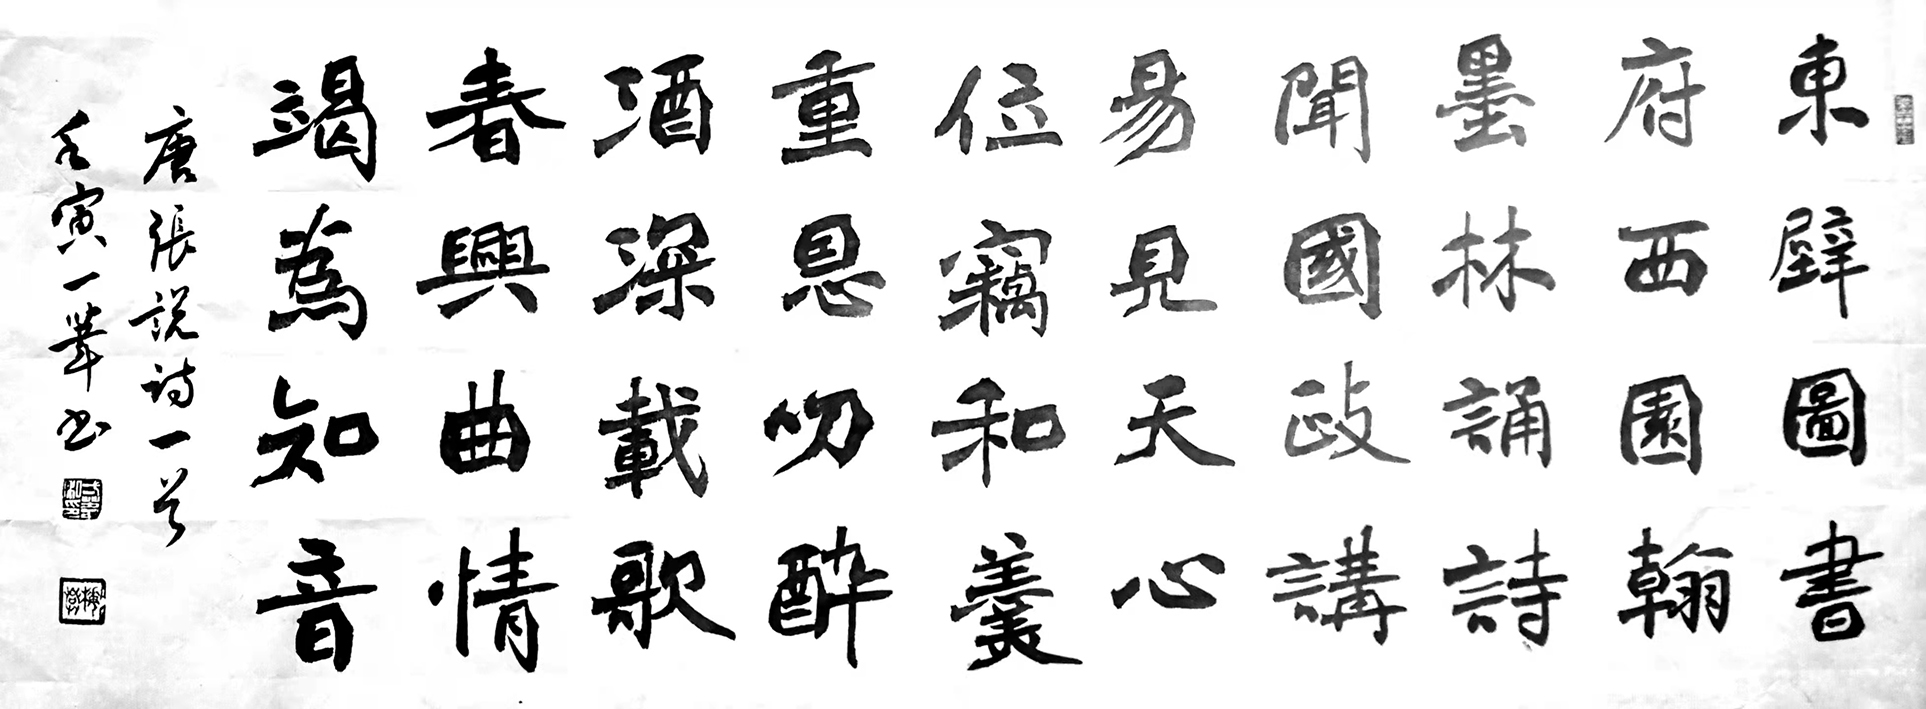 東壁圖書
府西園翰
墨林誦詩
聞國政講
易見天心
位竊和羹
重恩叨醉
酒深載歌
春興曲情
竭為知音
唐張説詩一首
壬寅一葦书